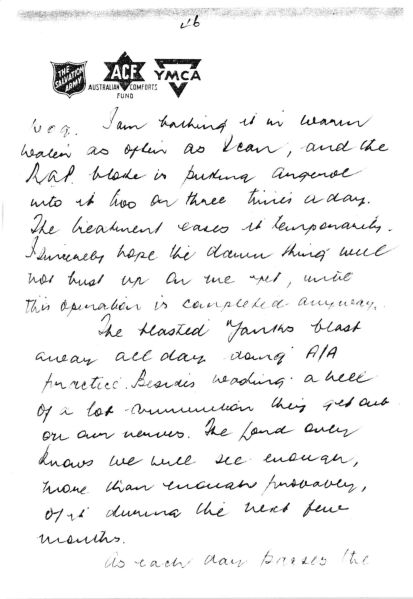 26
THE SALVATION ARMY
ACF
AUSTRALIAN COMFORTS FUND
YMCA
I am bathing it in warm
water as often as I can, and the
R.A.P. bloke is putting
into it two or three times a day.
The treatment eases it temporarily.
I sincerely hope the damn thing will
not bust up on me yet, until
this operation is completed anyway.
The blasted Yanks blast
away all day doing A/A
practice. Besides wasting a hell
of a lot ammunition they get out
on our nerves. The Lord only
knows we will see enough,
more than enough probably,
of it during the next few
months.
As each day passes the